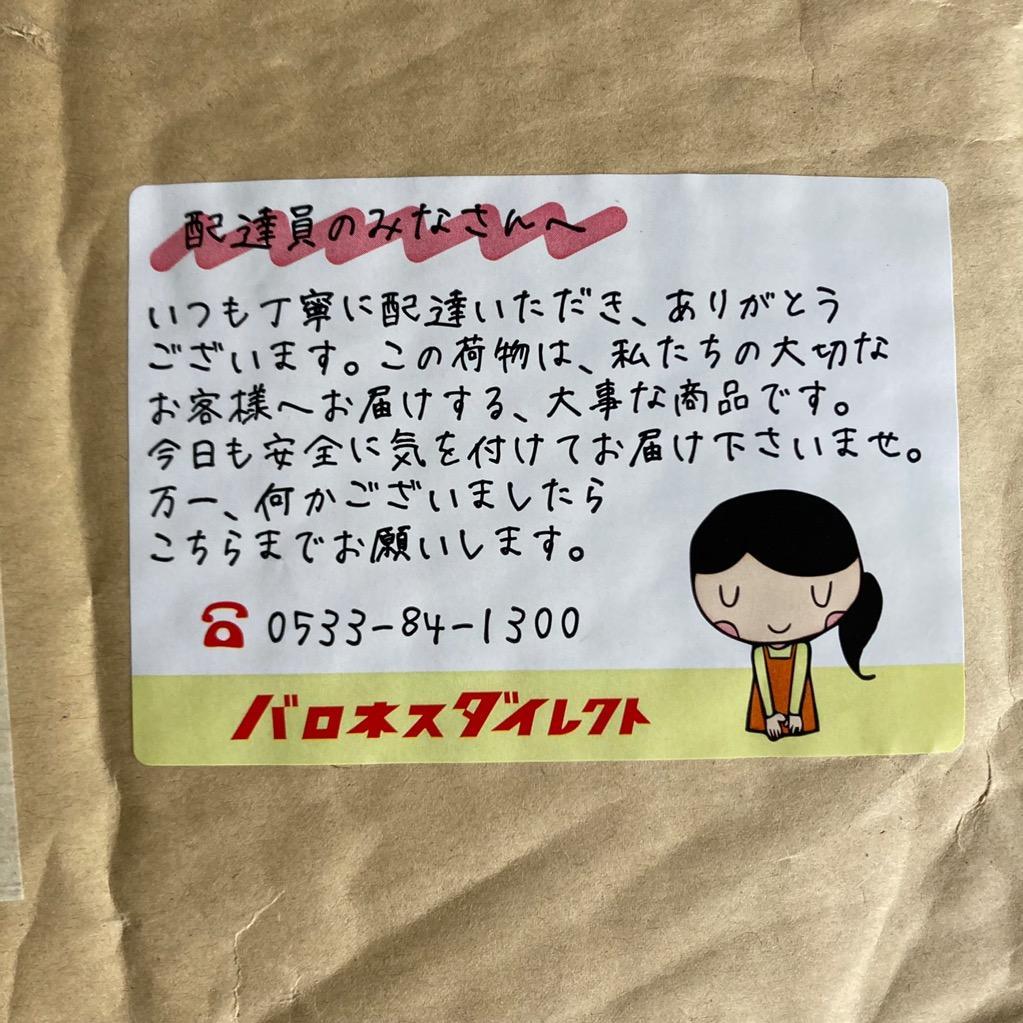 配達員のみなさんへ
いつも丁寧に配達いただき、ありがとう
ございます。この荷物は、私たちの大切な
お客様へお届けする、大事な商品です。
今日も安全に気を付けてお届け下さいませ。
万一、何かございましたら
こちらまでお願いします。
☎ 0533-84-1300
バロネスダイレクト